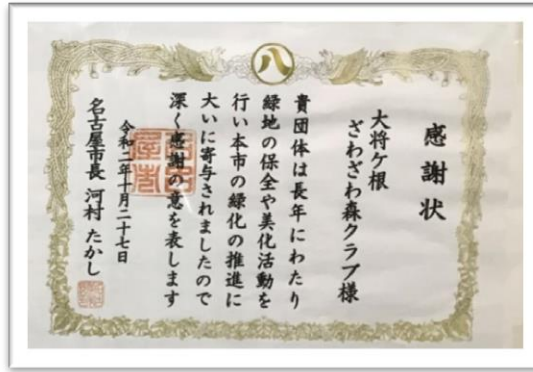 八
感謝状
大将ケ根
ざわざわ森クラブ様
貴団体は長年にわたり
緑地の保全や美化活動を
行い本市の緑化の推進に
大いに寄与されましたので
深く感謝の意を表します
令和二年十月二十七日
名古屋市長 河村 たかし